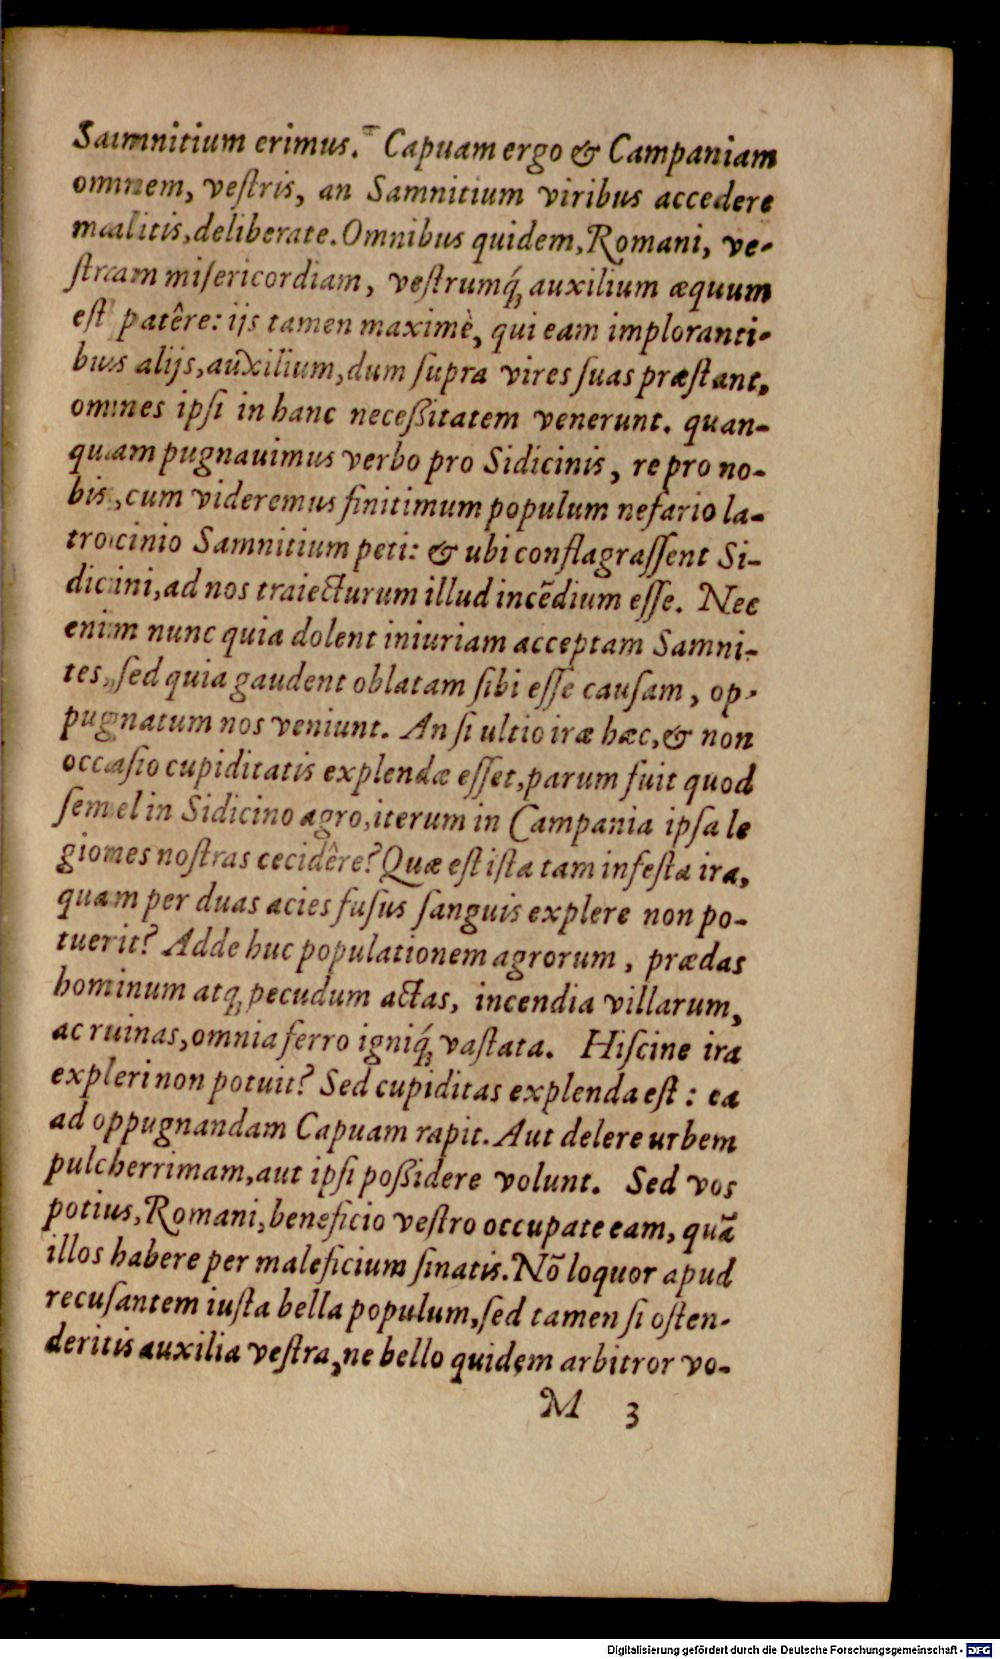 Samnitium erimus. Capuam ergo & Campaniam
omnem, veſtris, an Samnitium viribus accedere
malitis, deliberate. Omnibus quidem, Romani, ve-
ſtram miſericordiam, veſtrumq́; auxilium æquum
eſt patêre: ijs tamen maximè, qui eam imploranti-
bus alijs, auxilium, dum ſupra vires ſuas præſtant,
omnes ipſi in hanc neceßitatem venerunt. quan-
quam pugnauimus verbo pro Sidicinis, re pro no-
bis, cum videremus finitimum populum nefario la-
trocinio Samnitium peti: & ubi conflagraſſent Si-
dicini, ad nos traiecturum illud incẽdium eſſe. Nec
enim nunc quia dolent iniuriam acceptam Samni-
tes, ſed quia gaudent oblatam ſibi eſſe cauſam, op-
pugnatum nos veniunt. An ſi ultio iræ hæc, & non
occaſio cupiditatis explendæ eſſet, parum fuit quod
ſemel in Sidicino agro, iterum in Campania ipſa le
giones noſtras cecidêre? Quæ eſt iſta tam infeſta ira,
quam per duas acies fuſus ſanguis explere non po-
tuerit? Adde huc populationem agrorum, prædas
hominum atq; pecudum actas, incendia villarum,
ac ruinas, omnia ferro igniq́; vaſtata. Hiſcine ira
expleri non potuit? Sed cupiditas explenda eſt: ea
ad oppugnandam Capuam rapit. Aut delere urbem
pulcherrimam, aut ipſi poßidere volunt. Sed vos
potius, Romani, beneficio veſtro occupate eam, quã
illos habere per maleficium ſinatis. Nõ loquor apud
recuſantem iuſta bella populum, ſed tamen ſi oſten-
deritis auxilia veſtra, ne bello quidem arbitror vo-
M 3
Digitalisierung gefördert durch die Deutsche Forschungsgemeinschaft - DFG